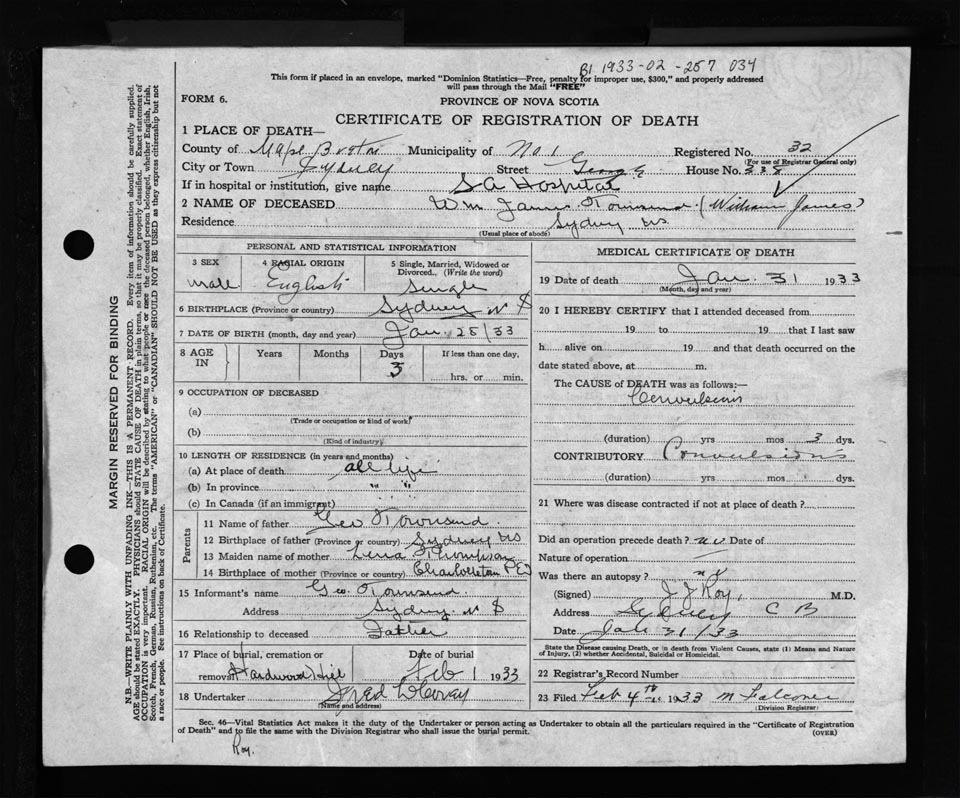 B1 1933-02-257 034
This form if placed in an envelope, marked "Dominion Statistics—Free, penalty for improper use, $300," and properly addressed
will pass through the Mail "FREE"
FORM 6.
PROVINCE OF NOVA SCOTIA
CERTIFICATE OF REGISTRATION OF DEATH
1 PLACE OF DEATH—
County of Cape Breton Municipality of No 1 Registered No. 32
(For use of Registrar General only)
City or Town Sydney Street George House No.
If in hospital or institution, give name S A Hospital
2 NAME OF DECEASED Wm James Townsend (William James)
Residence Sydney NS
(Usual place of abode)
PERSONAL AND STATISTICAL INFORMATION
3 SEX 4 RACIAL ORIGIN 5 Single, Married, Widowed or
Divorced. (Write the word)
Male English Single
6 BIRTHPLACE (Province or country) Sydney N S
7 DATE OF BIRTH (month, day and year) Jan. 28/33
8 AGE Years Months Days If less than one day,
IN 3 hrs. or min.
9 OCCUPATION OF DECEASED
(a)
(Trade or occupation or kind of work)
(b)
(Kind of industry)
10 LENGTH OF RESIDENCE (in years and months)
(a) At place of death all life
(b) In province " "
(c) In Canada (if an immigrant) " "
Parents
11 Name of father Geo Townsend
12 Birthplace of father (Province or country) Sydney NS
13 Maiden name of mother Lena Thompson
14 Birthplace of mother (Province or country) Charlottetown PEI
15 Informant's name Geo. Townsend
Address Sydney N S
16 Relationship to deceased Father
17 Place of burial, cremation or Date of burial
removal Hardwood Hill Feb 1 1933
18 Undertaker Fred
(Name and address)
MEDICAL CERTIFICATE OF DEATH
19 Date of death Jan. 31 1933
(Month, day and year)
20 I HEREBY CERTIFY that I attended deceased from
19 to 19 that I last saw
h alive on 19 and that death occurred on the
date stated above, at m.
The CAUSE of DEATH was as follows:—
Convulsions
(duration) yrs mos 3 dys.
CONTRIBUTORY Convulsions
(duration) yrs mos dys.
21 Where was disease contracted if not at place of death?
Did an operation precede death? no Date of
Nature of operation
Was there an autopsy? no
(Signed) J J Roy, M.D.
Address Sydney C B
Date Jan 31/33
State the Disease causing Death, or in death from Violent Causes, state (1) Means and Nature
of Injury, (2) whether Accidental, Suicidal or Homicidal.
22 Registrar's Record Number
23 Filed Feb 4th 1933 M Falconer
(Division Registrar)
Sec. 46—Vital Statistics Act makes it the duty of the Undertaker or person acting as Undertaker to obtain all the particulars required in the "Certificate of Registration
of Death" and to file the same with the Division Registrar who shall issue the burial permit.
(OVER)
Roy.
MARGIN RESERVED FOR BINDING
N.B.—WRITE PLAINLY WITH UNFADING INK—THIS IS A PERMANENT RECORD. Every item of information should be carefully supplied.
AGE should be stated EXACTLY. PHYSICIANS should STATE CAUSE OF DEATH in plain terms, so that it may be properly classified. Exact statement of
OCCUPATION is very important. RACIAL ORIGIN will be described by stating to what people or race the deceased person belonged, whether English, Irish,
Scotch, French, German, Russian, Ruthenian, etc. The terms "AMERICAN" or "CANADIAN" SHOULD NOT BE USED as they express citizenship but not
a race or people. See instructions on back of Certificate.